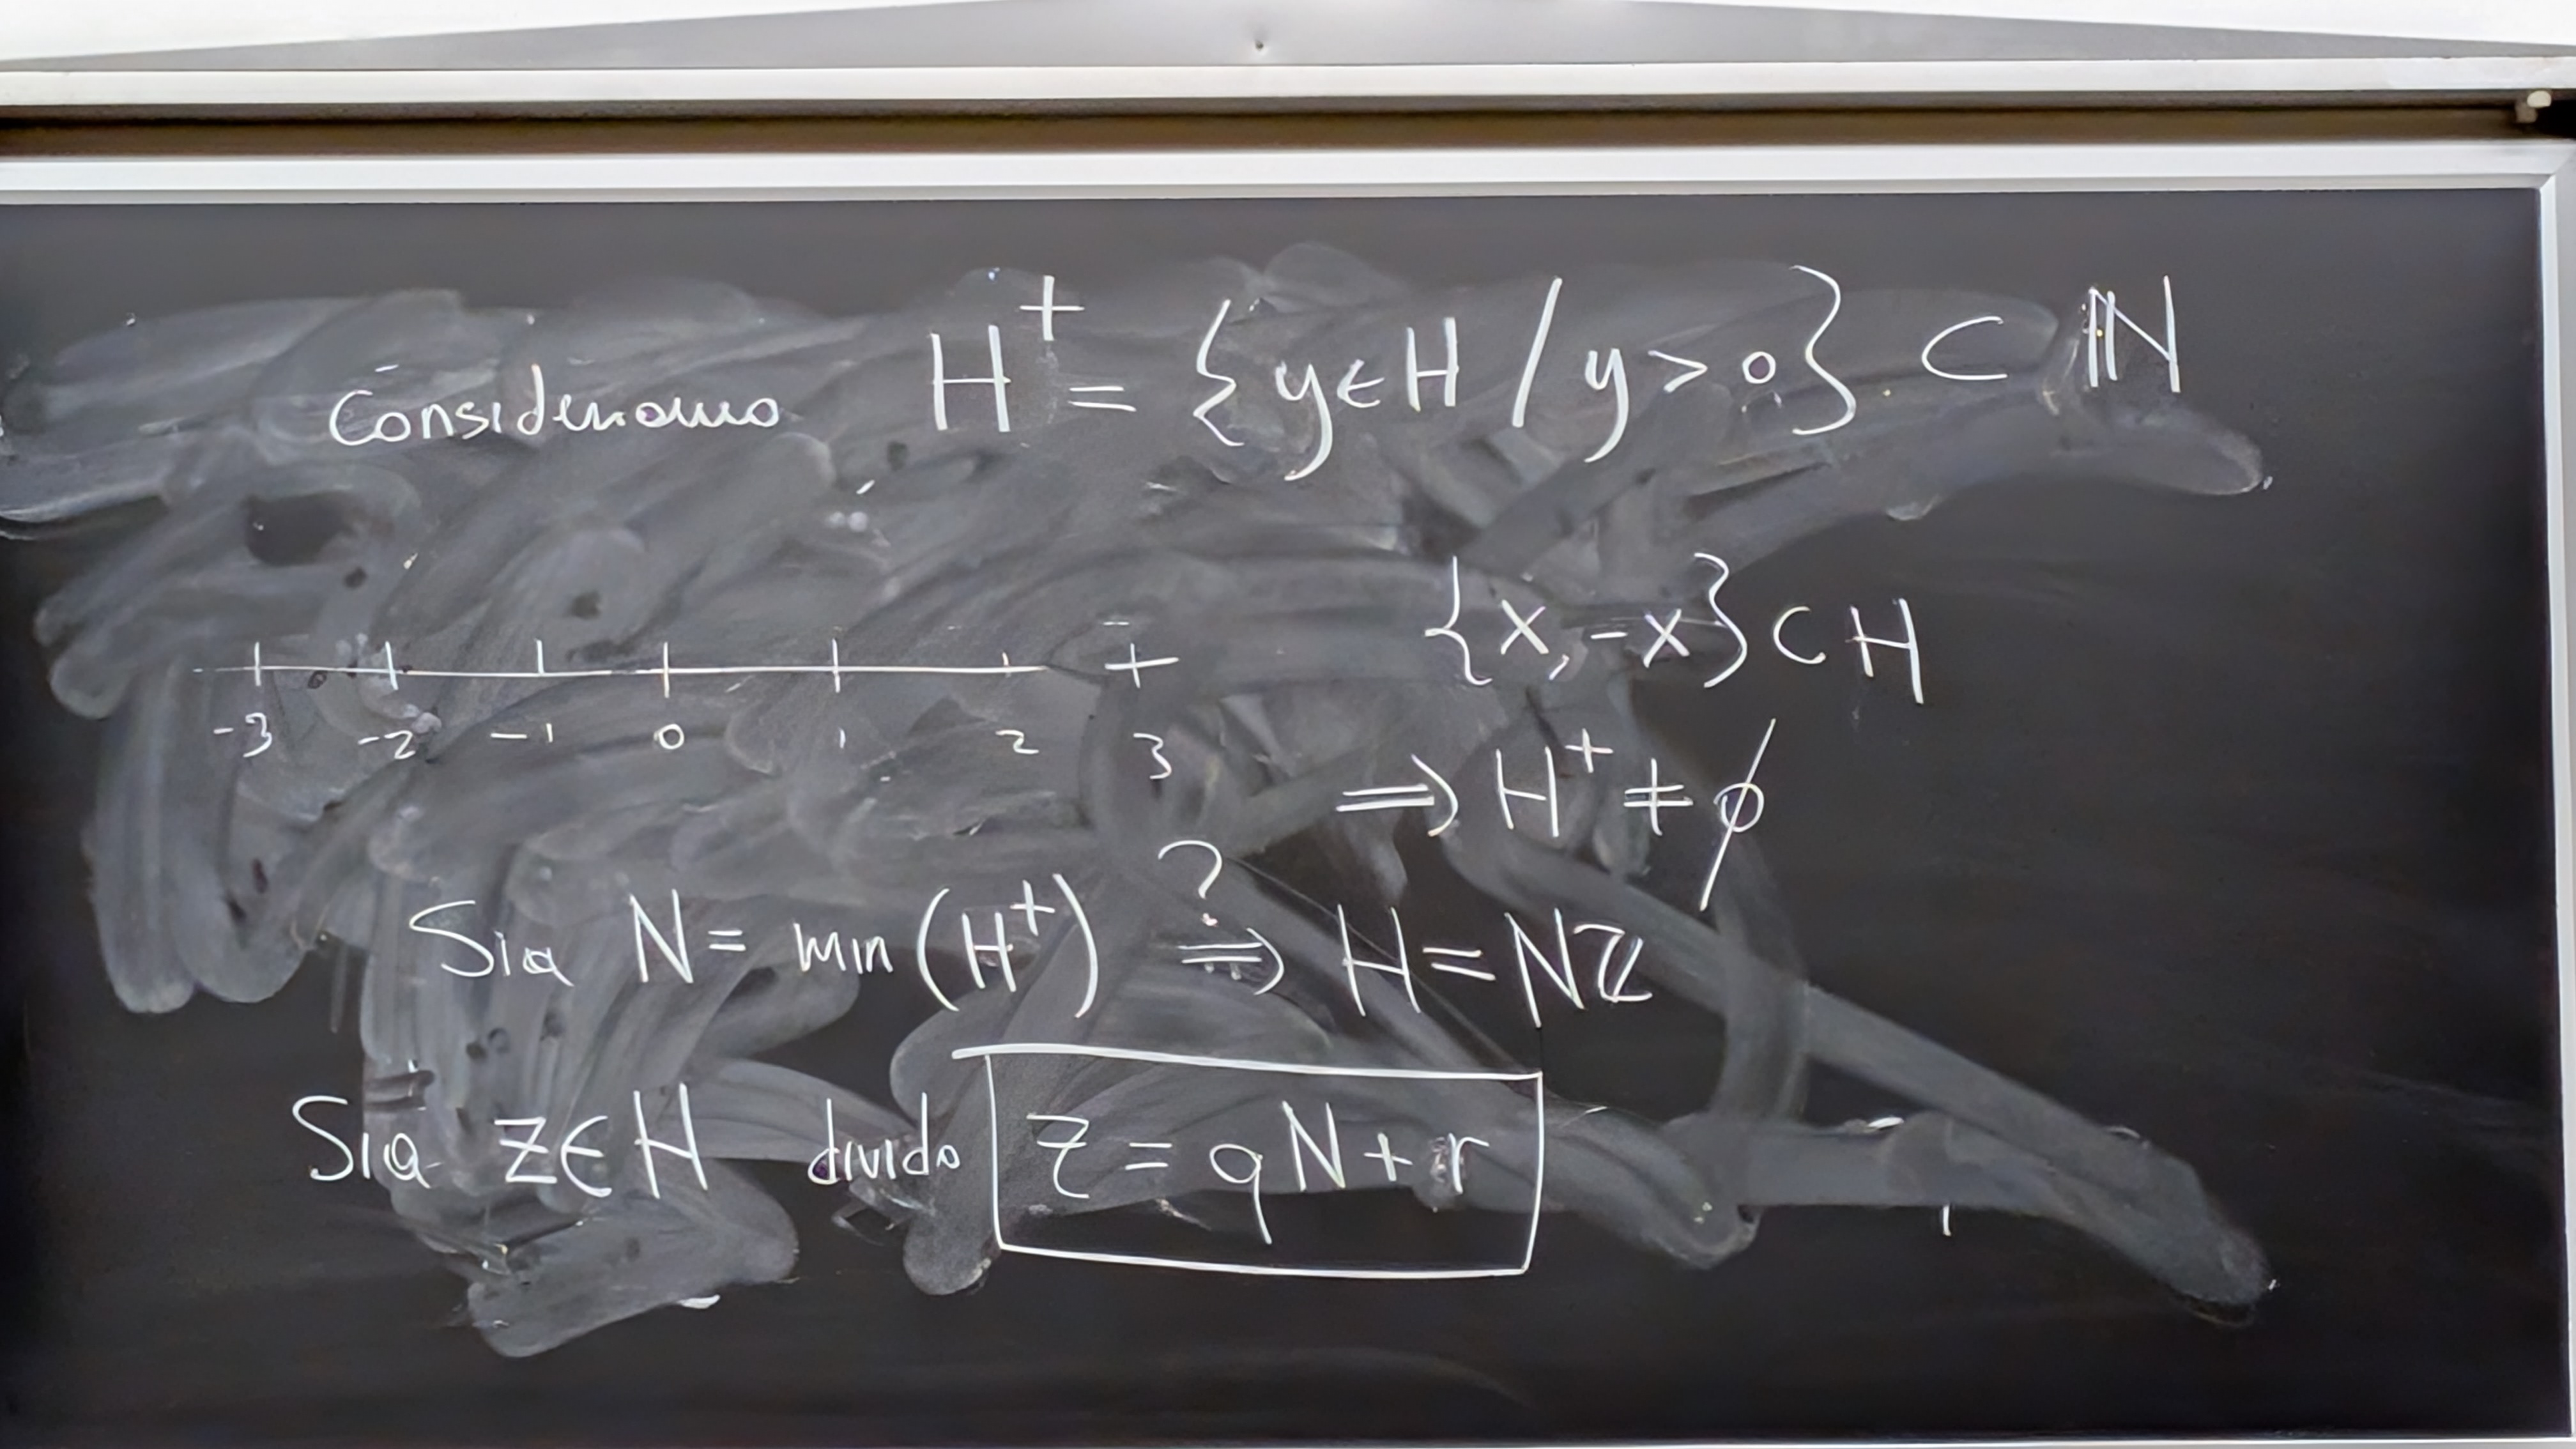 Consideriamo H⁺ = { y ∈ H / y > 0 } ⊂ ℕ
{x, -x} ⊂ H
-3 -2 -1 0 1 2 3
⟹ H⁺ ≠ ∅
Sia N = min (H⁺) ?⟹ H = Nℤ
Sia z ∈ H divido z = qN + r